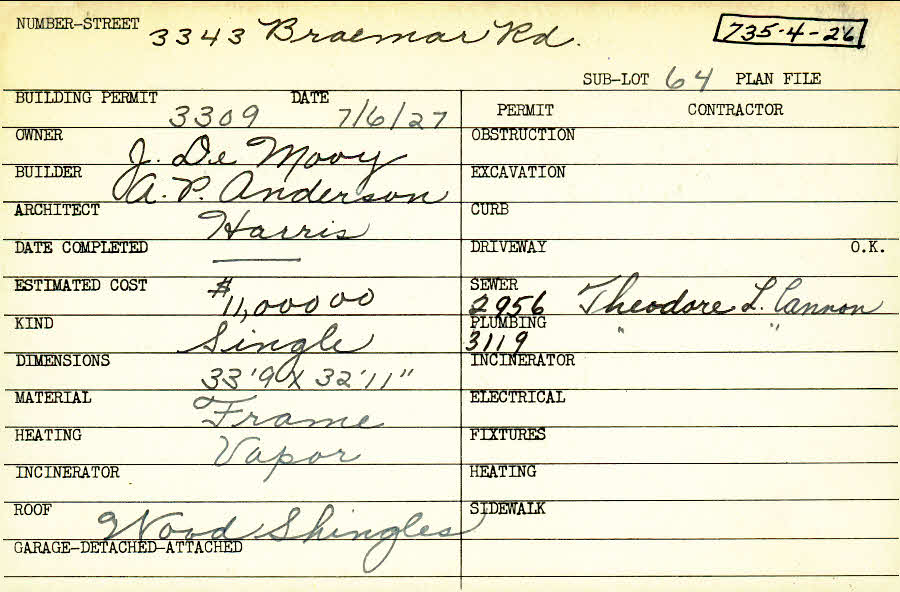 NUMBER-STREET 3343 Braemar Rd. 735-4-26
SUB-LOT 64 PLAN FILE
BUILDING PERMIT 3309 DATE 7/6/27
PERMIT CONTRACTOR
OWNER J. De Mooy
OBSTRUCTION
BUILDER A. P. Anderson
EXCAVATION
ARCHITECT Harris
CURB
DATE COMPLETED ——
DRIVEWAY O.K.
ESTIMATED COST $11,000 00
SEWER 2956 Theodore L. Cannon
KIND Single
PLUMBING 3119 " "
DIMENSIONS 33'9 X 32'11"
INCINERATOR
MATERIAL Frame
ELECTRICAL
HEATING Vapor
FIXTURES
INCINERATOR
HEATING
ROOF Wood Shingles
SIDEWALK
GARAGE-DETACHED-ATTACHED